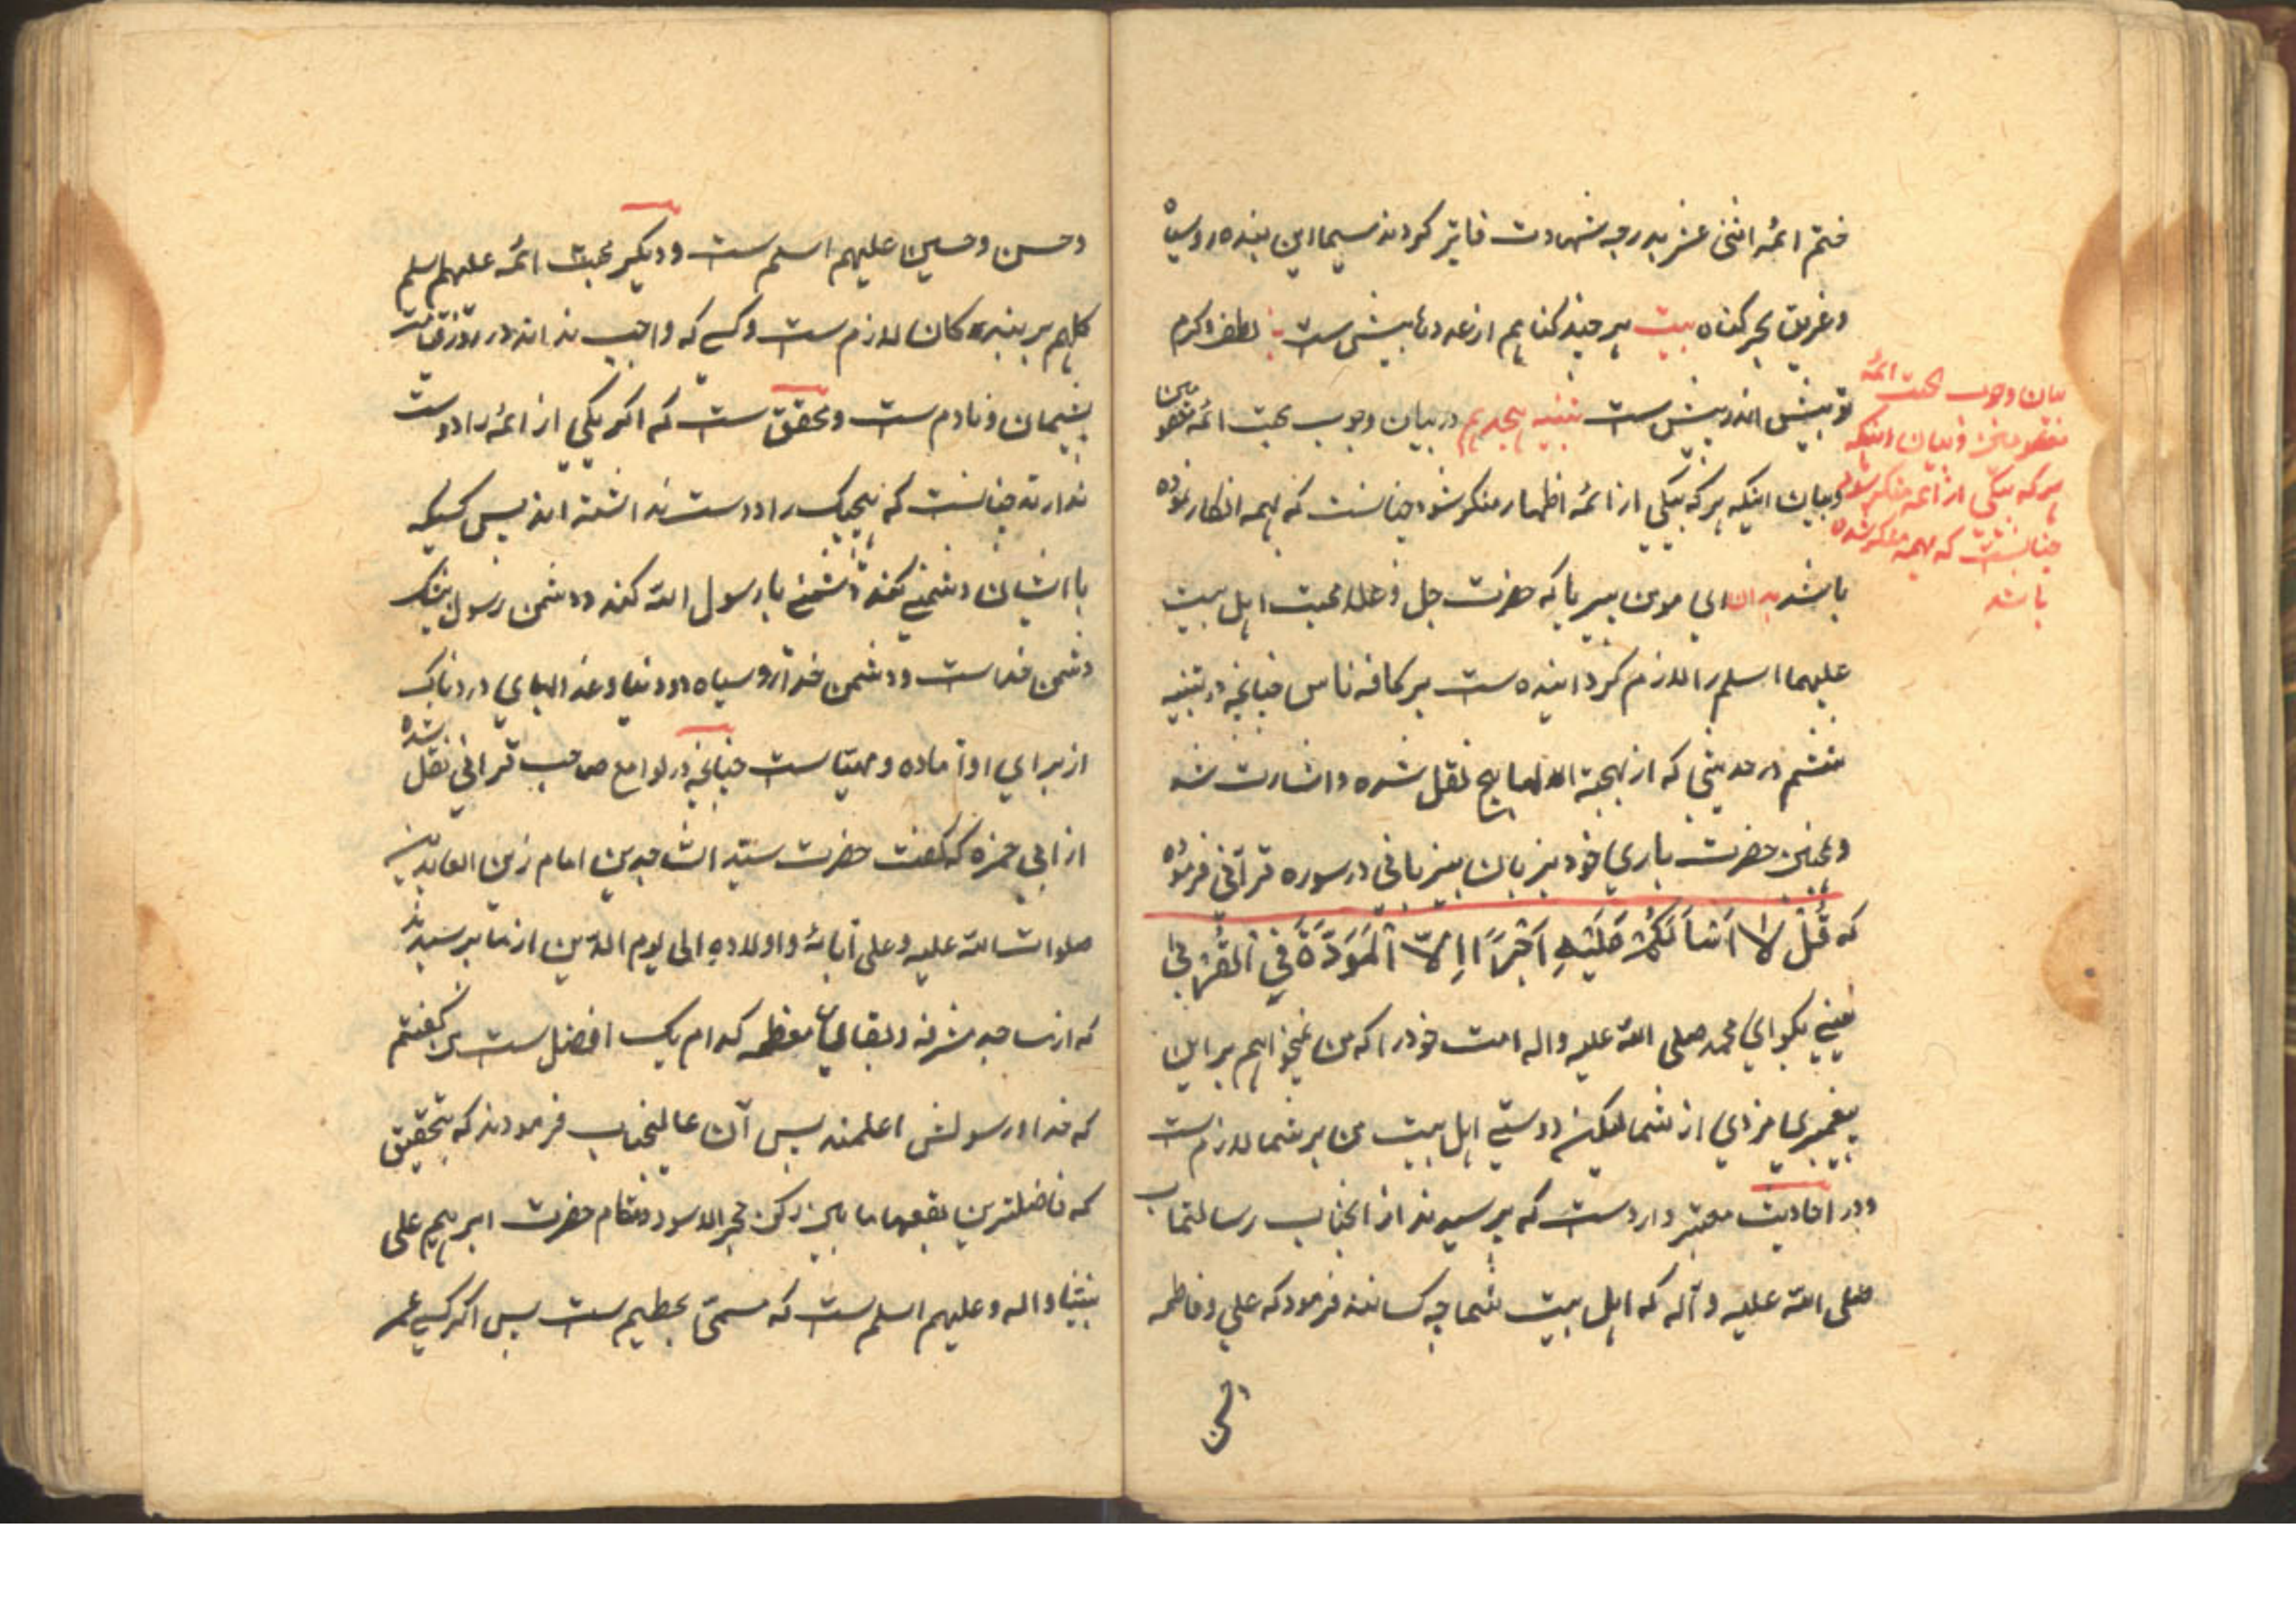 ختم ائمه اثنی عشر بدرجه شهادت فایز کردند سیما این بنده روسیاه
و غریق بحر گناه بیت هر چند گناهم از عدد بیش ست لطف و کرم
تو بیش اندر بیش ست تنبیه هجدهم در بیان وجوب محبت ائمه معصومین
و بیان اینکه هر که بیکی از ائمه اطهار منکر شود چنانست که بهمه انکار نموده
باشد بدان ای مومن بیریا که حضرت جل وعلا محبت اهل بیت
علیهما اسلم را لازم گردانیده ست بر کافه ناس چنانچه در تنبیه
هشتم در حدیثی که از بهجة المباهج نقل شده و اشارت شد
وهمچنین حضرت باری خود بزبان بیزبانی در سوره قرآنی فرموده
که قُلْ لا اَسْاَلُکُمْ عَلَیْهِ اَجْرًا اِلاّ الْمَوَدَّةَ فِی الْقُرْبی
یعنی بگو ای محمد صلی الله علیه واله امت خود را که من نمیخواهم بر این
پیغمبری مزدی از شما لیکن دوستی اهل بیت من بر شما لازم ست
ودر احادیث معتبر وارد ست که پرسیدند از انجناب رسالتماب
صلی الله علیه وآله که اهل بیت شما چه کسانند فرمود که علی وفاطمه
بیان وجوب محبت ائمه
معصومین وبیان اینکه
هر که بیکی از ائمه منکر شود
چنانست که بهمه منکر شده
باشد
وحسن وحسین علیهم اسلم ست ودیگر محبت ائمه علیهم اسلم
کلهم بر بندگان لازم ست وکسی که واجب نداند در روز قیامت
پشیمان و نادم ست ومحقق ست که اگر یکی از ائمه را دوست
ندارند چنانست که هیچیک را دوست نداشته اند پس کسیکه
با ایشان دشمنی کند دشمنی با رسول الله کند ودشمن رسول بیشک
دشمن خداست ودشمن خدا روسیاه دو دنیا وعذابهای دردناک
از برای او آماده و مهیا ست چنانچه در لوامع صاحب قرانی نقل شده
از ابی حمزه که گفت حضرت سید الساجدین امام زین العابدین
صلوات الله علیه وعلی آبائه واولاده الی یوم الدین از ما پرسیدند
که از مساجد مشرفه وبقاع معظمه کدام یک افضل ست من گفتم
که خدا ورسولش اعلمند پس آن عالیجناب فرمودند که بتحقیق
که فاضلترین بقعها ما بین رکن حجر الاسود ومقام حضرت ابرهیم علی
نبینا واله وعلیهم اسلم ست که مسمی بحطیم ست پس اگر کسی عمر